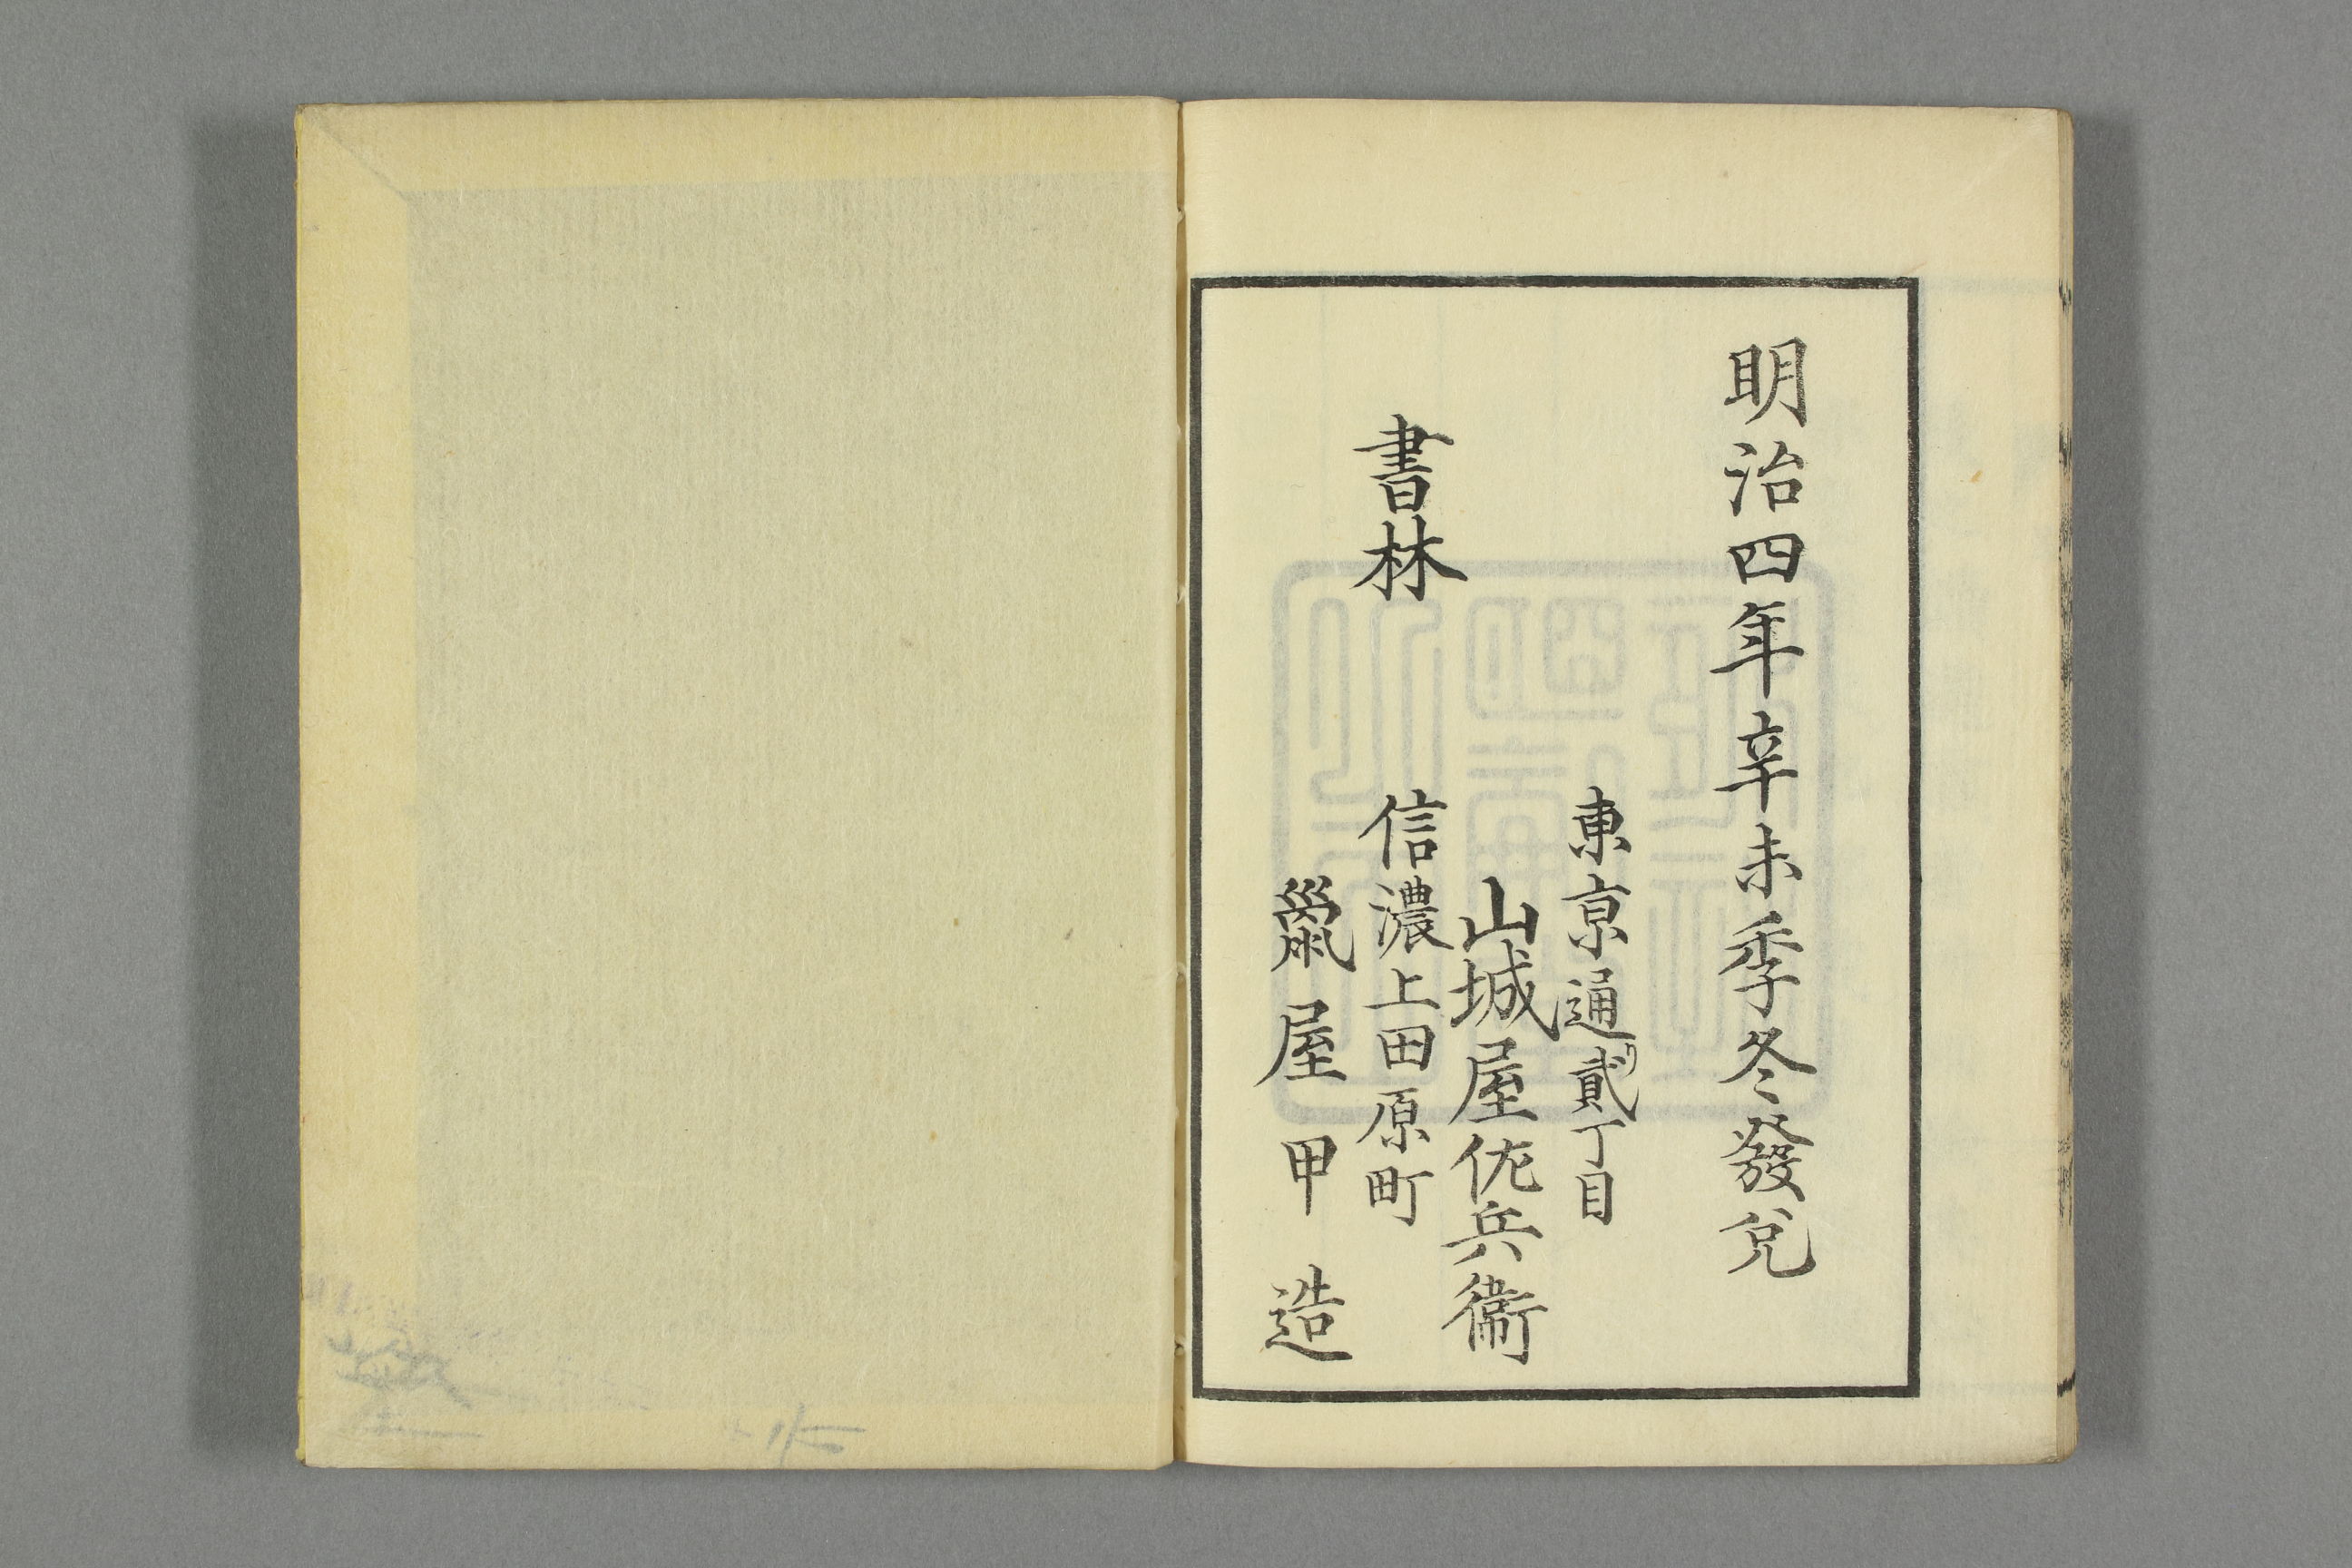 明治四年辛未季冬發兌
書林
東京通リ貳丁目
山城屋佐兵衞
信濃上田原町
屋甲造